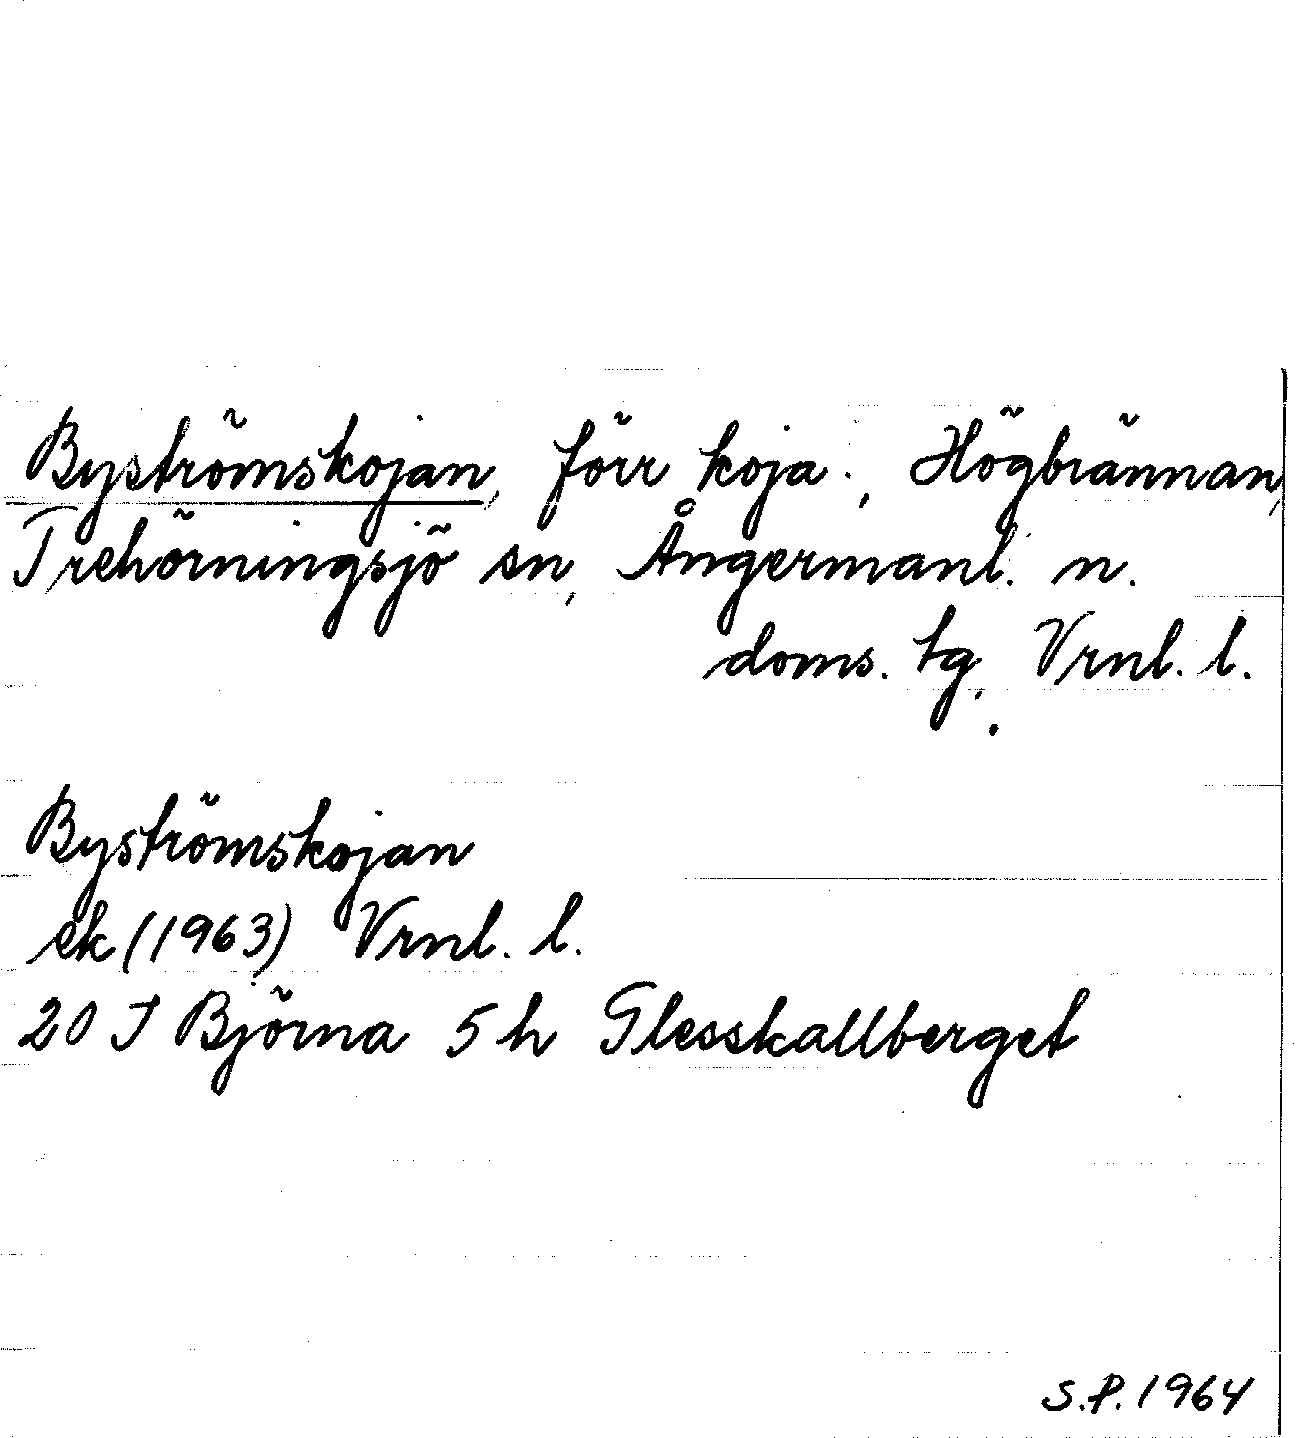 Byströmskojan, förr koja, Högbrännan,
Trehörningsjö sn, Ångermanl. n.
doms. tg, Vrnl. l.
Byströmskojan
ek (1963) Vrnl. l.
20 I Björna 5 h Glesskallberget
S.P. 1964